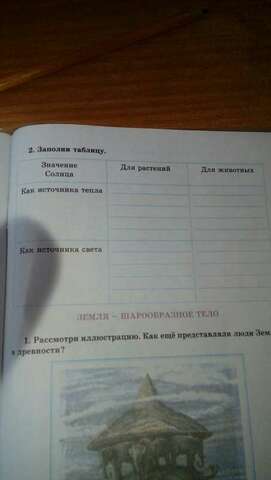 2. Заполни таблицу.
Значение Солнца
Для растений
Для животных
Как источника тепла
Как источника света
ЗЕМЛЯ – ШАРООБРАЗНОЕ ТЕЛО
1. Рассмотри иллюстрацию. Как ещё представляли люди Зем
в древности?